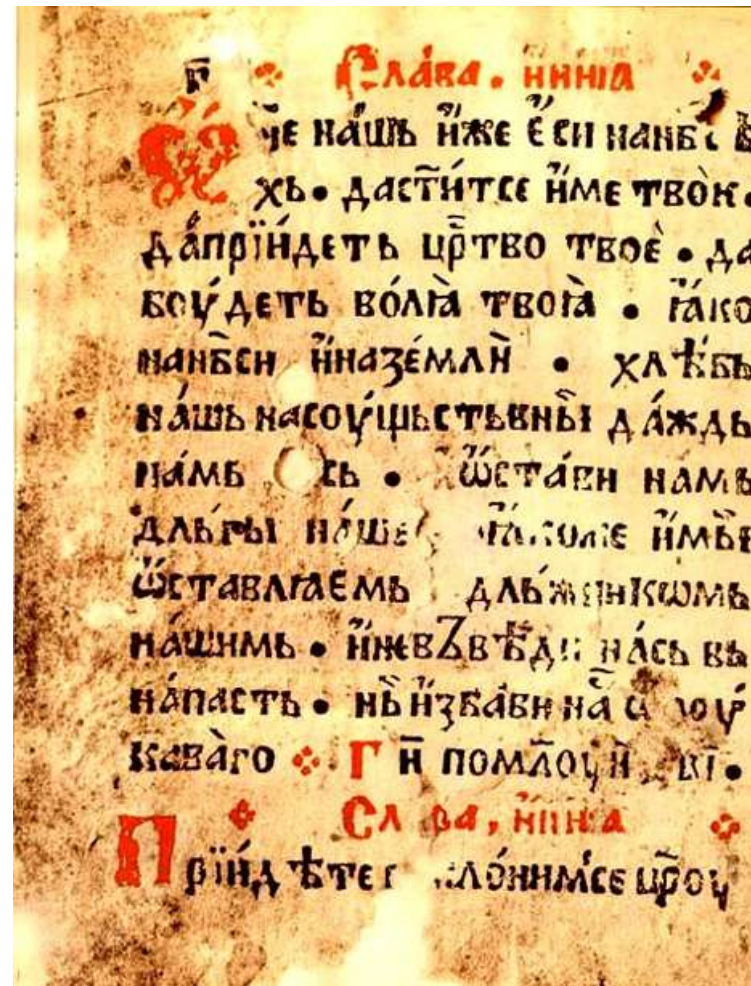 г҃ Сла́ва . нинꙗ
Ѿче на́шь и҆́же є҆́си на нб҃ се
хь • да ст҃и́т се и҆́ме твоѐ •
да прїи́деть цр҃тво твоѐ • да
боу́деть во́лꙗ̀ твоꙗ̀ • ꙗ҆́ко
на нб҃си и҆́ на зе́мли̏ • хлѣ́бь
на́шь насоу́щьстьвны̏ да́ждь
на́мь • ѿста́ви намь
дль́гы на́ше ꙗ҆́коже и҆́ мы̏
ѿставлꙗемь дль́жникѡмь
на́шимь • и҆́ не вꙁвѣди на́сь вь
на́пасть • нь̏ и҆́збави на̑ лоу́
кава̀го Г҃и помл҃оу́и в҃і •
Слава , ни҆́нꙗ
Прїи́дѣте кло́ним се цр҃оу